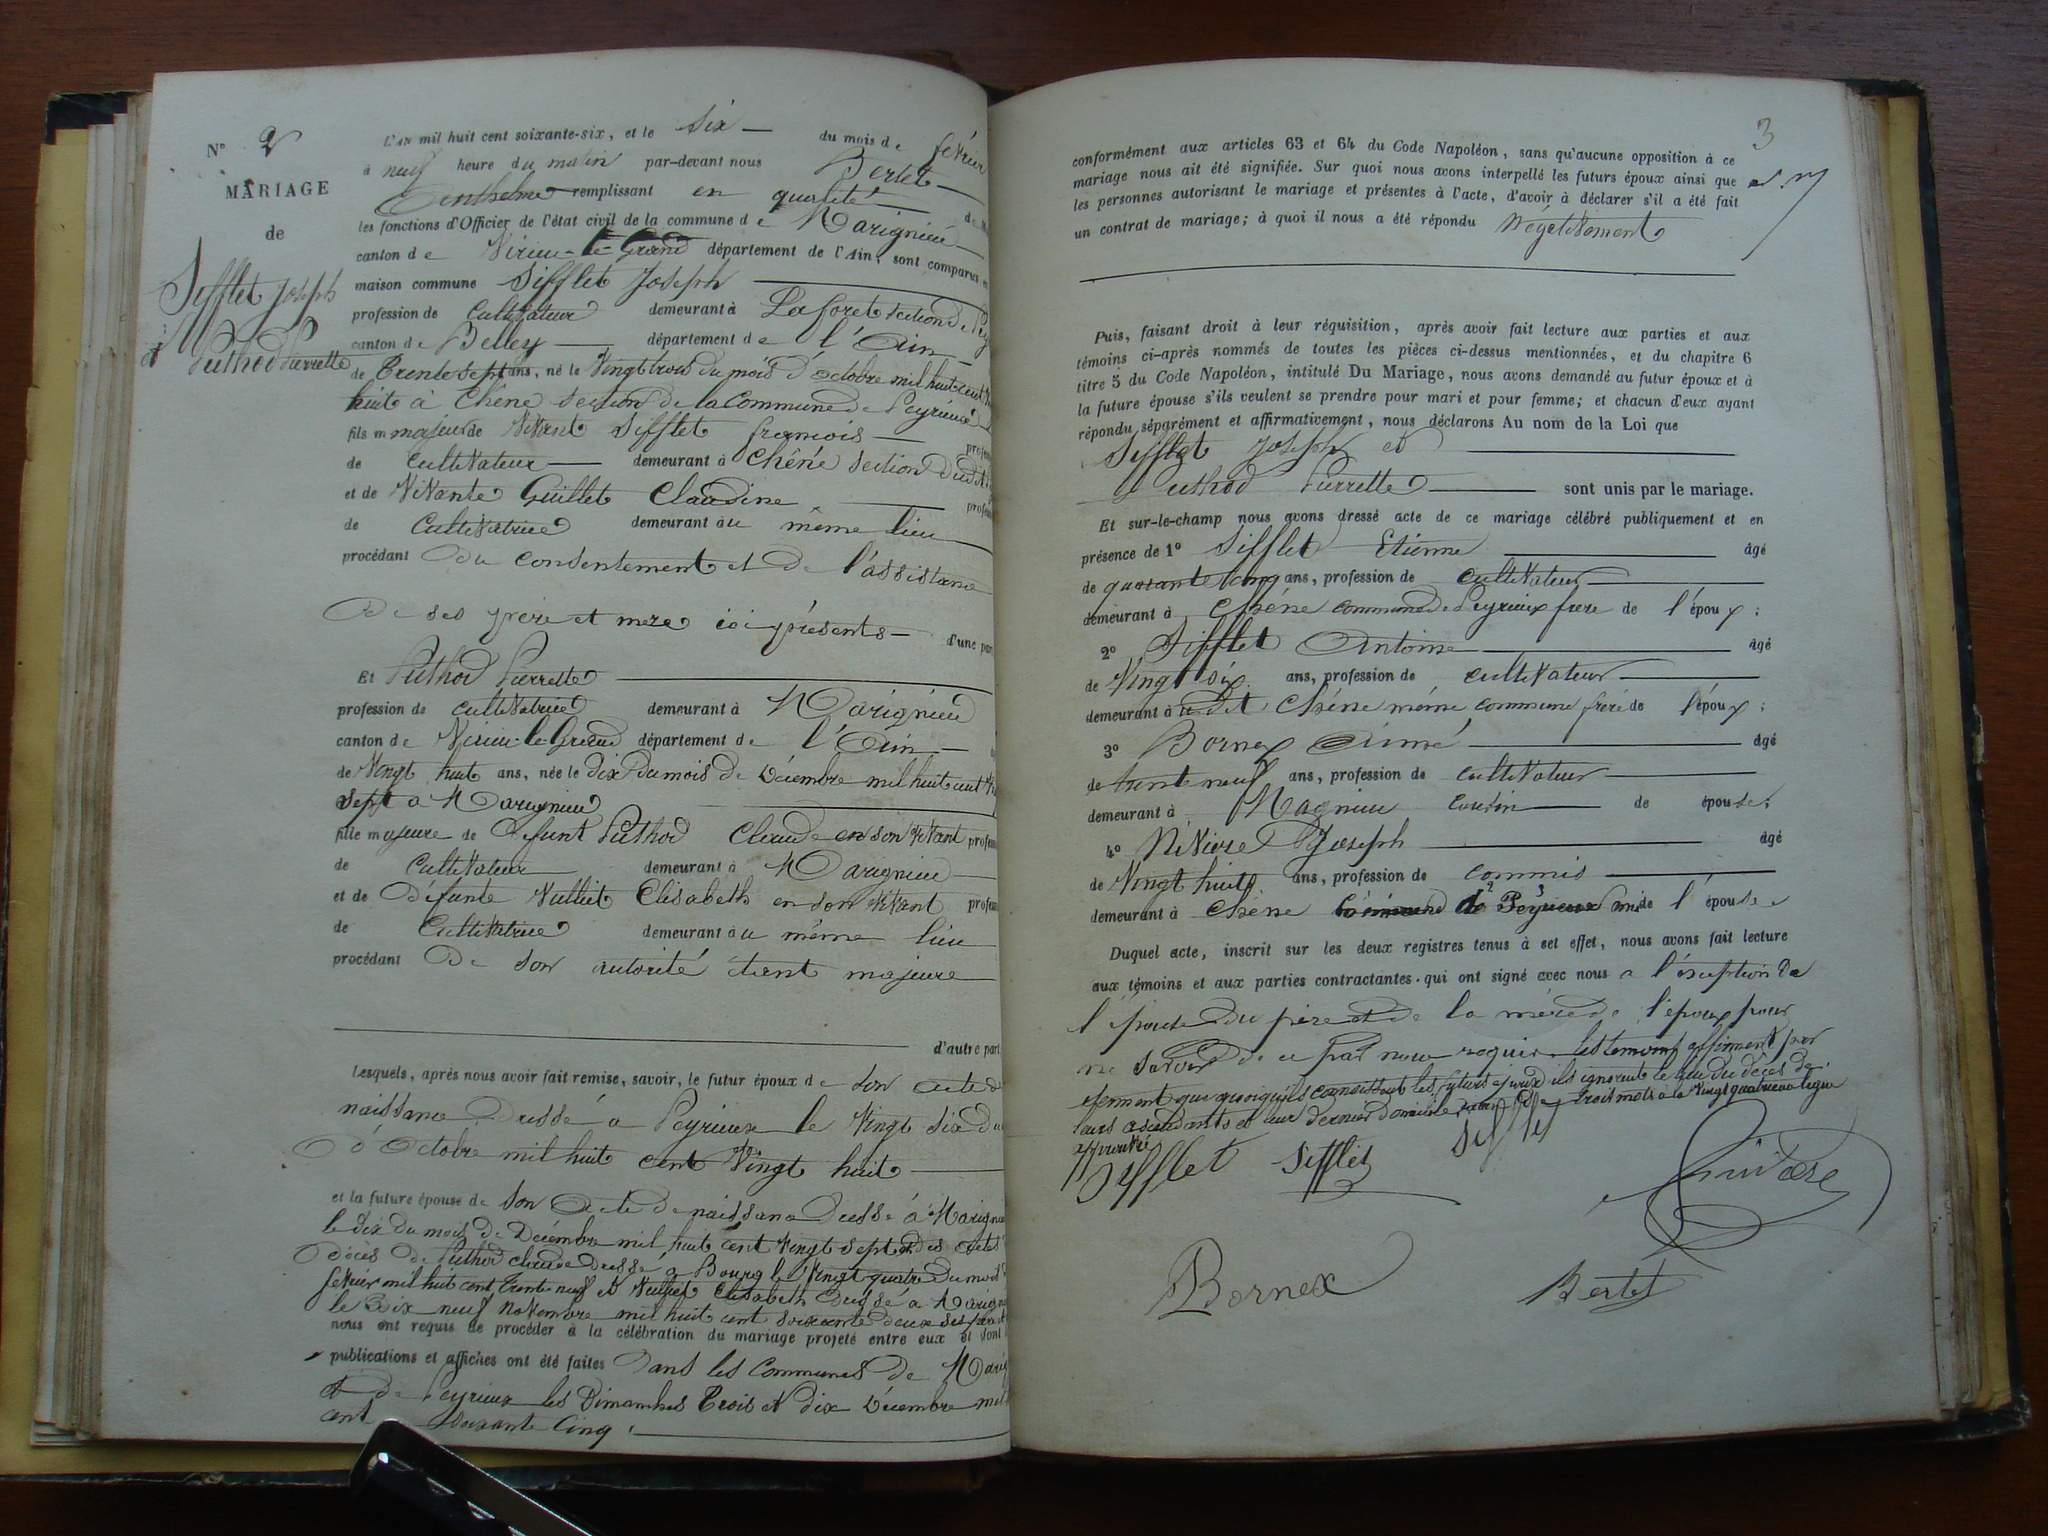 N° 2
MARIAGE
de
Sifflet Joseph
et
Puthod Pierrette
L'AN mil huit cent soixante-six, et le six du mois de février
à neuf heure du matin par-devant nous Bertet
Anthelme remplissant en qualité de
les fonctions d'Officier de l'état civil de la commune de Marignieu
canton de Virieu-le-Grand département de l'Ain, sont comparus en
maison commune Sifflet Joseph
profession de cultivateur demeurant à La foret section de Pey
canton de Belley département de l'Ain
de Trente sept ans, né le Vingt trois du mois d'octobre mil huit cent
huit à Chêne section de la Commune de Peyrieux
fils majeur de Vivant Sifflet françois
de cultivateur demeurant à Chêne section dudit
et de Vivante Guillet Claudine
de Cultivatrice demeurant au même lieu
procédant du consentement et de l'assistance
de ses père et mere ici présents d'une part
Et Puthod Pierrette
profession de cultivatrice demeurant à Marignieu
canton de Virieu-le-Grand département de l'Ain
de Vingt huit ans, née le dix du mois de Décembre mil huit cent
sept a Marignieu
fille majeure de Defunt Puthod Claude en son vivant
de Cultivateur demeurant à Marignieu
et de Défunte Vulliet Elisabeth en son vivant
de Cultivatrice demeurant au même lieu
procédant de son autorité étant majeure
d'autre part
Lesquels, après nous avoir fait remise, savoir, le futur époux de son acte de
naissance Dressé a Peyrieux le Vingt six du
d'Octobre mil huit cent Vingt huit
et la future épouse de son acte de naissance dressé à Marignieu
le dix du mois de Décembre mil huit cent Vingt sept et des actes
décès de Puthod claude dressé à Bourg le Vingt quatre du mois
fevrier mil huit cent trente neuf et Vulliet Elisabeth dressé a Marign
le Dix neuf Novembre mil huit cent soixante deux ses père et
nous ont requis de procéder à la célébration du mariage projeté entre eux et dont
publications et affiches ont été faites dans les communes de Marig
et de Peyrieux les Dimanches trois et dix Décembre mil
cent soixante cinq
3
conformément aux articles 63 et 64 du Code Napoléon, sans qu'aucune opposition à ce
mariage nous ait été signifiée. Sur quoi nous avons interpellé les futurs époux ainsi que
les personnes autorisant le mariage et présentes à l'acte, d'avoir à déclarer s'il a été fait
un contrat de mariage; à quoi il nous a été répondu Négativement
Puis, faisant droit à leur réquisition, après avoir fait lecture aux parties et aux
témoins ci-après nommés de toutes les pièces ci-dessus mentionnées, et du chapitre 6
titre 5 du Code Napoléon, intitulé Du Mariage, nous avons demandé au futur époux et à
la future épouse s'ils veulent se prendre pour mari et pour femme; et chacun d'eux ayant
répondu séparément et affirmativement, nous déclarons Au nom de la Loi que
Sifflet Joseph et
Puthod Pierrette sont unis par le mariage.
Et sur-le-champ nous avons dressé acte de ce mariage célébré publiquement et en
présence de 1° Sifflet Etienne âgé
de quarante cinq ans, profession de cultivateur
demeurant à Chêne commune de Peyrieux frere de l'époux;
2° Sifflet Antoine âgé
de Vingt six ans, profession de cultivateur
demeurant à udit Chêne même commune frère de l'époux;
3° Bornex Aimé âgé
de trente neuf ans, profession de cultivateur
demeurant à Magnieu cousin de épouse;
4° Rivière Joseph âgé
de Vingt huit ans, profession de commis
demeurant à Chêne commune de Peyrieux ami de l'épouse
Duquel acte, inscrit sur les deux registres tenus à cet effet, nous avons fait lecture
aux témoins et aux parties contractantes qui ont signé avec nous a l'éxception de
l'épouse du père et de la mère de l'époux pour
ne savoir de ce fait nous requis les temoins affirment par
serment que quoiqu'ils connaissent les futurs époux ils ignorent le lieu du décès de
leurs ascendants et leur dernier domicile trois mots à la Vingt quatrieme ligne
approuvé
Sifflet Sifflet Sifflet
Rivière
Bornex Bertet